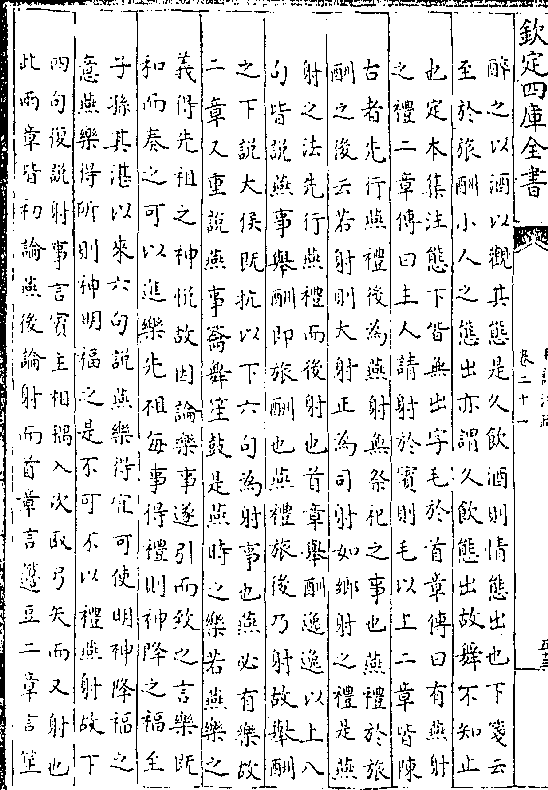 欽定四庫全書
卷二十一
醉之以酒以觀其態是久飲酒則情態出也下箋云
至於旅酬小人之態出亦謂久飲態出故舞不知止
也定本集注態下皆無出字毛於首章傳曰有燕射
之禮二章傳曰主人請射於賓則毛以上二章皆陳
古者先行燕禮後為燕射無祭祀之事也燕禮於旅
酬之後云若射則大射正為司射如鄉射之禮是燕
射之法先行燕禮而後射也首章舉酬逸逸以上八
句皆説燕事舉酬即旅酬也燕禮旅後乃射故舉酬
之下説大侯既抗以下六句為射事也燕必有樂故
二章又重説燕事籥舞笙鼓是燕時之樂若燕樂之
義得先祖之神悦故因論樂事遂引而致之言樂既
和而奏之可以進樂先祖每事得禮則神降之福至
子孫其湛以來六句説燕樂得宜可使明神降福之
意燕樂得所則神明福之是不可不以禮燕射故下
四句復説射事言賓主相耦入次取弓矢而又射也
此兩章皆初論燕後論射而首章言籩豆二章言笙